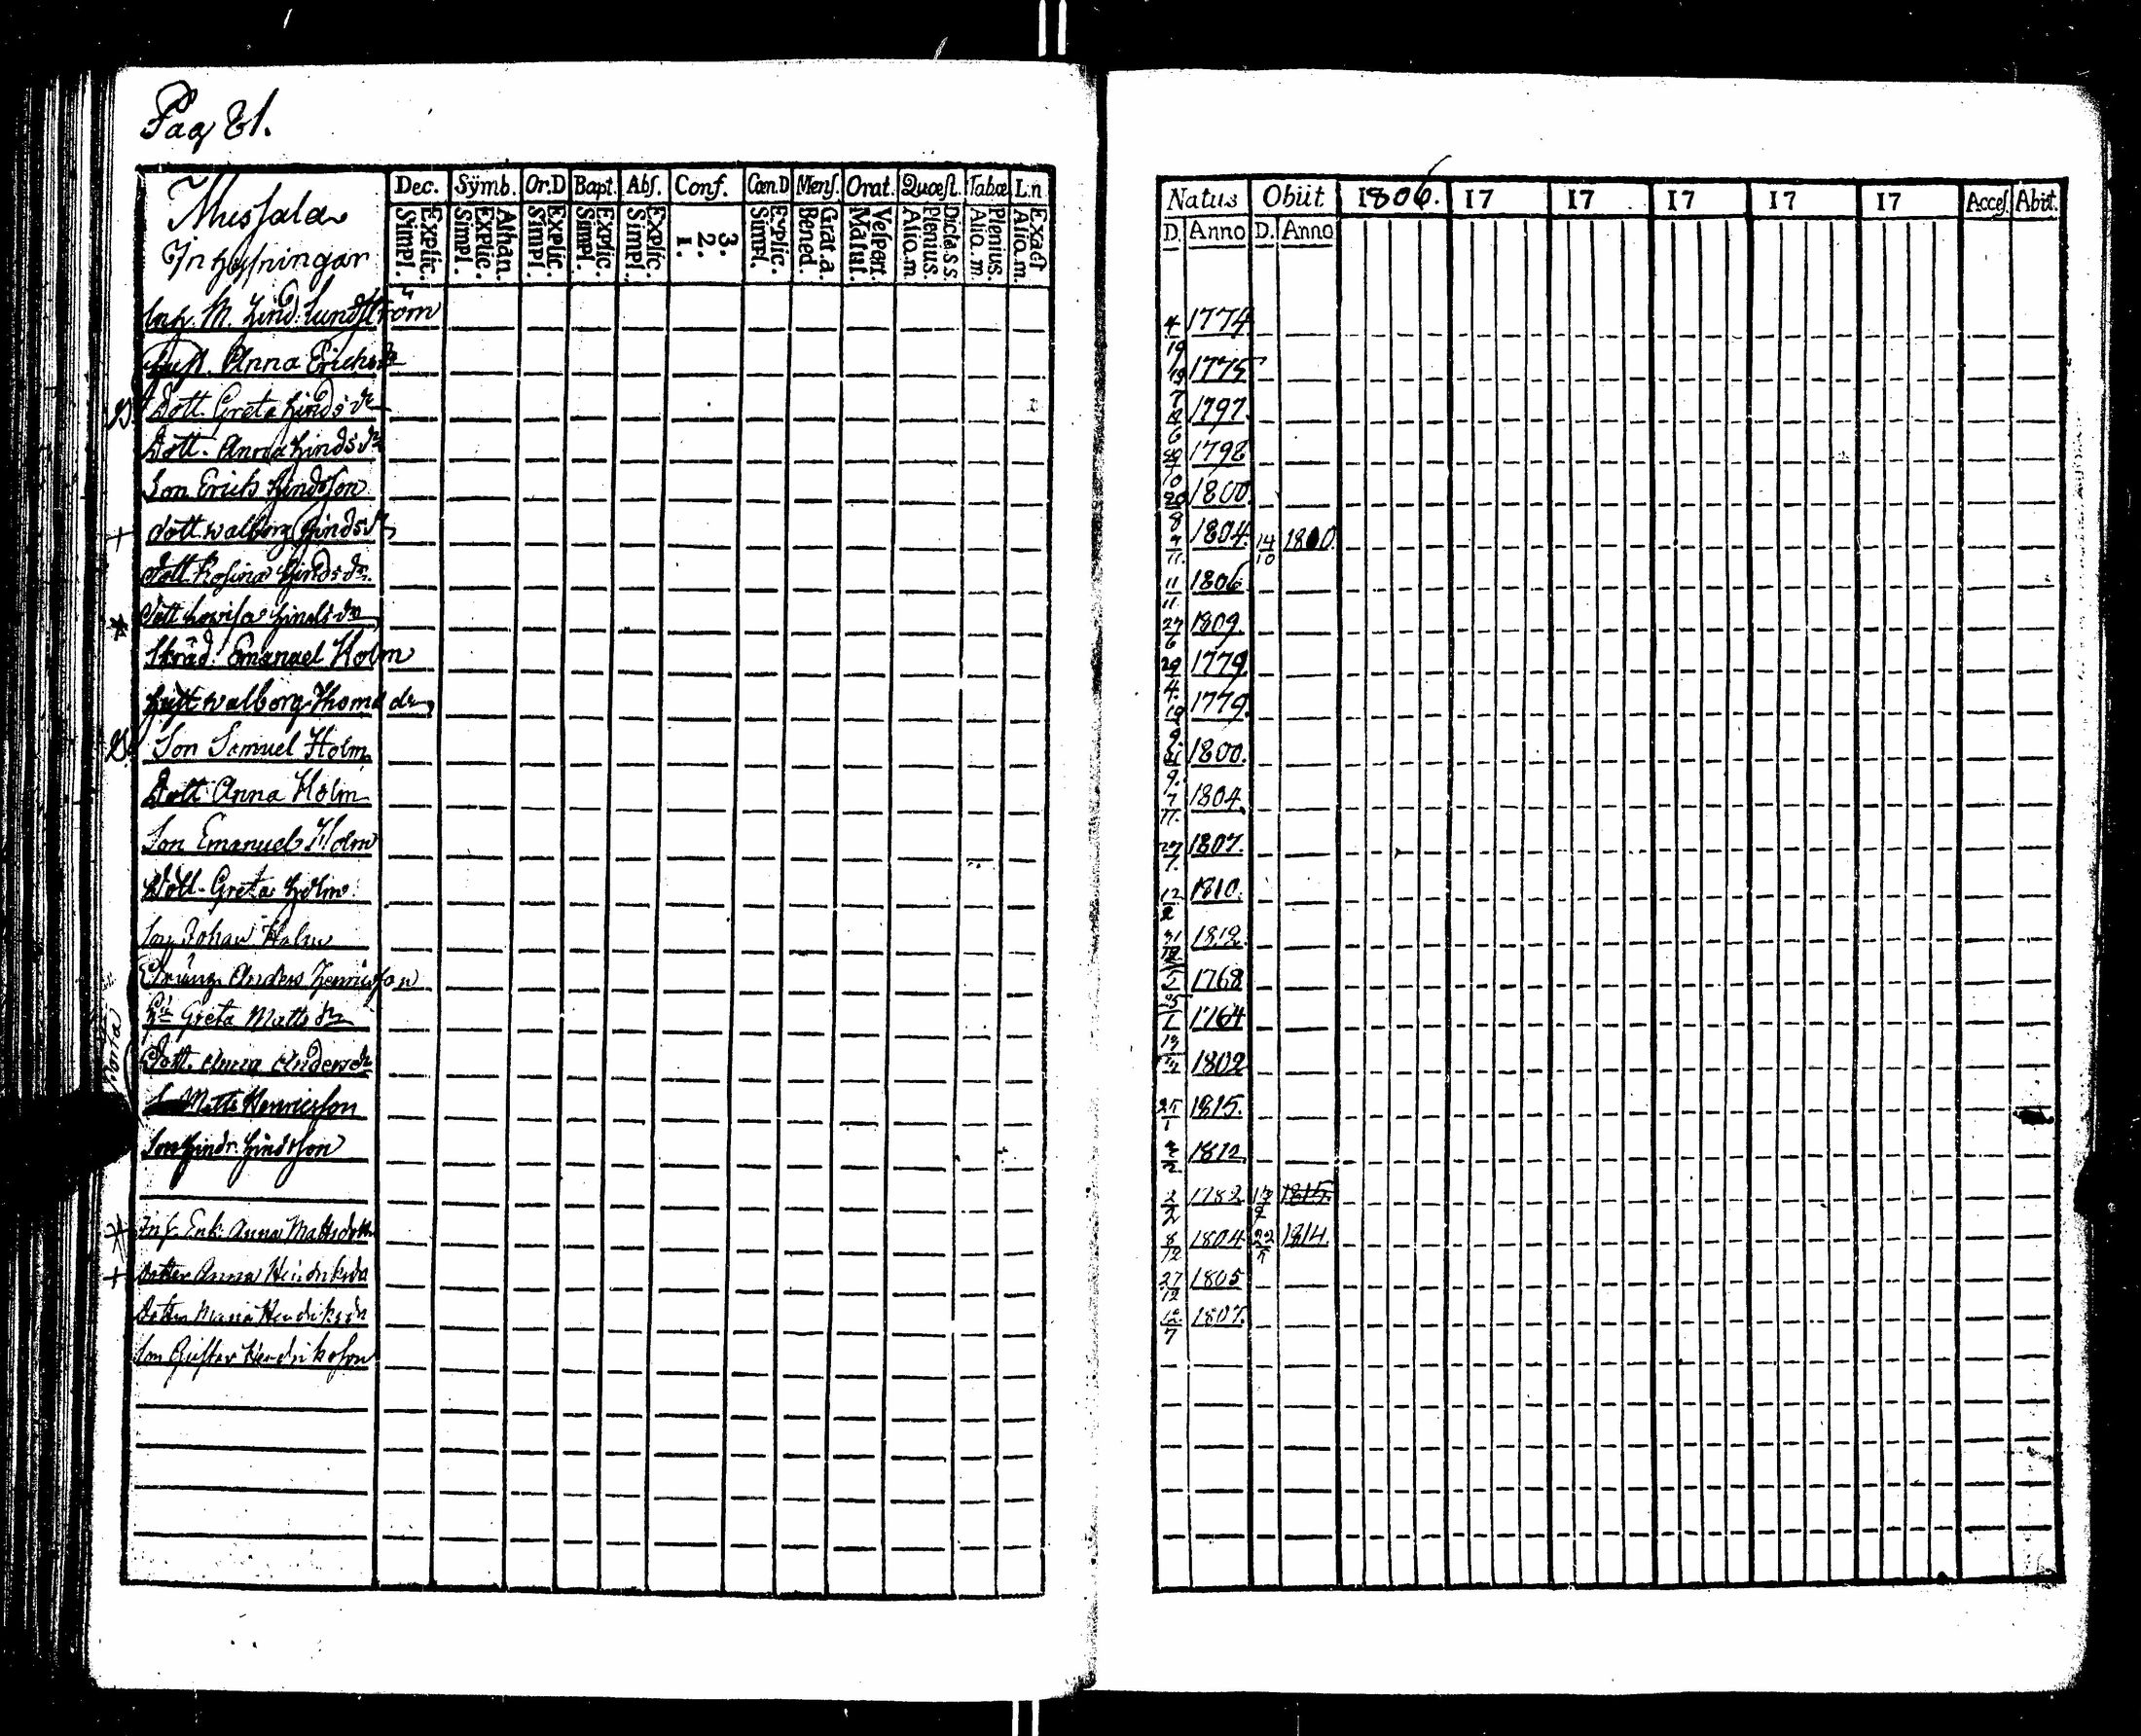 Pag 81.
Mussala
Inhysningar
Dec. Symb. Or.D Bapt. Abs. Conf. Cœn.D Mens. Orat. Quæst. Tabæ L.n
Explic. Simpl. Athan. Explic. Simpl. Explic. Simpl. Explic. Simpl. Explic. Simpl. 3. 2. 1. Explic. Simpl. Grat.a. Bened. Vespert. Matut. Dicta.s.s. Plenius. Aliq.m Plenius. Aliq.m. Exact Aliq.m.
Natus Obiit 1806. 17 17 17 17 17 Acces. Abiit.
D. Anno D. Anno
Inh. M. Hind: Lundström 4/19 1774
Hust. Anna Erichsdr 19/7 1775
Dott. Greta Hindsdr 1797.
Dott. Anna Hindsdr 1798
Son Erich Hindsson 20/8 1800.
+ dott. Walborg Hindsdr 7/11. 1804. 14/10 1810.
Dott Rosina Hindsdr. 11/11. 1806
Dott Lovisa Hindsdr 27/6 1809.
Skräd. Emanuel Holm 29/4. 1779.
Hust Walborg Thomæ dr 19/9. 1779.
Son Samuel Holm 1800.
Dott Anna Holm 7/11. 1804.
Son Emanuel Holm 27/7. 1807.
Dott. Greta Holm 12/2 1810.
Son Johan Holm 31/12 1812.
Anders Henricsson 5 1768
Greta Mattsdr 25/1 1764
Dott. Anna Andersdr 1802
Matts Henricsson 25/1 1815.
Son Hindr. Hindsson 1812
2/2 1782 1815.
Inh. Enk. Anna Mattsdotter 8/12 1804 22/5 1814.
+ Dotter Anna Hendriksdr 27/12 1805
Dotter Maria Hendriksdr 12/7 1807.
Son Gustav Hendriksson